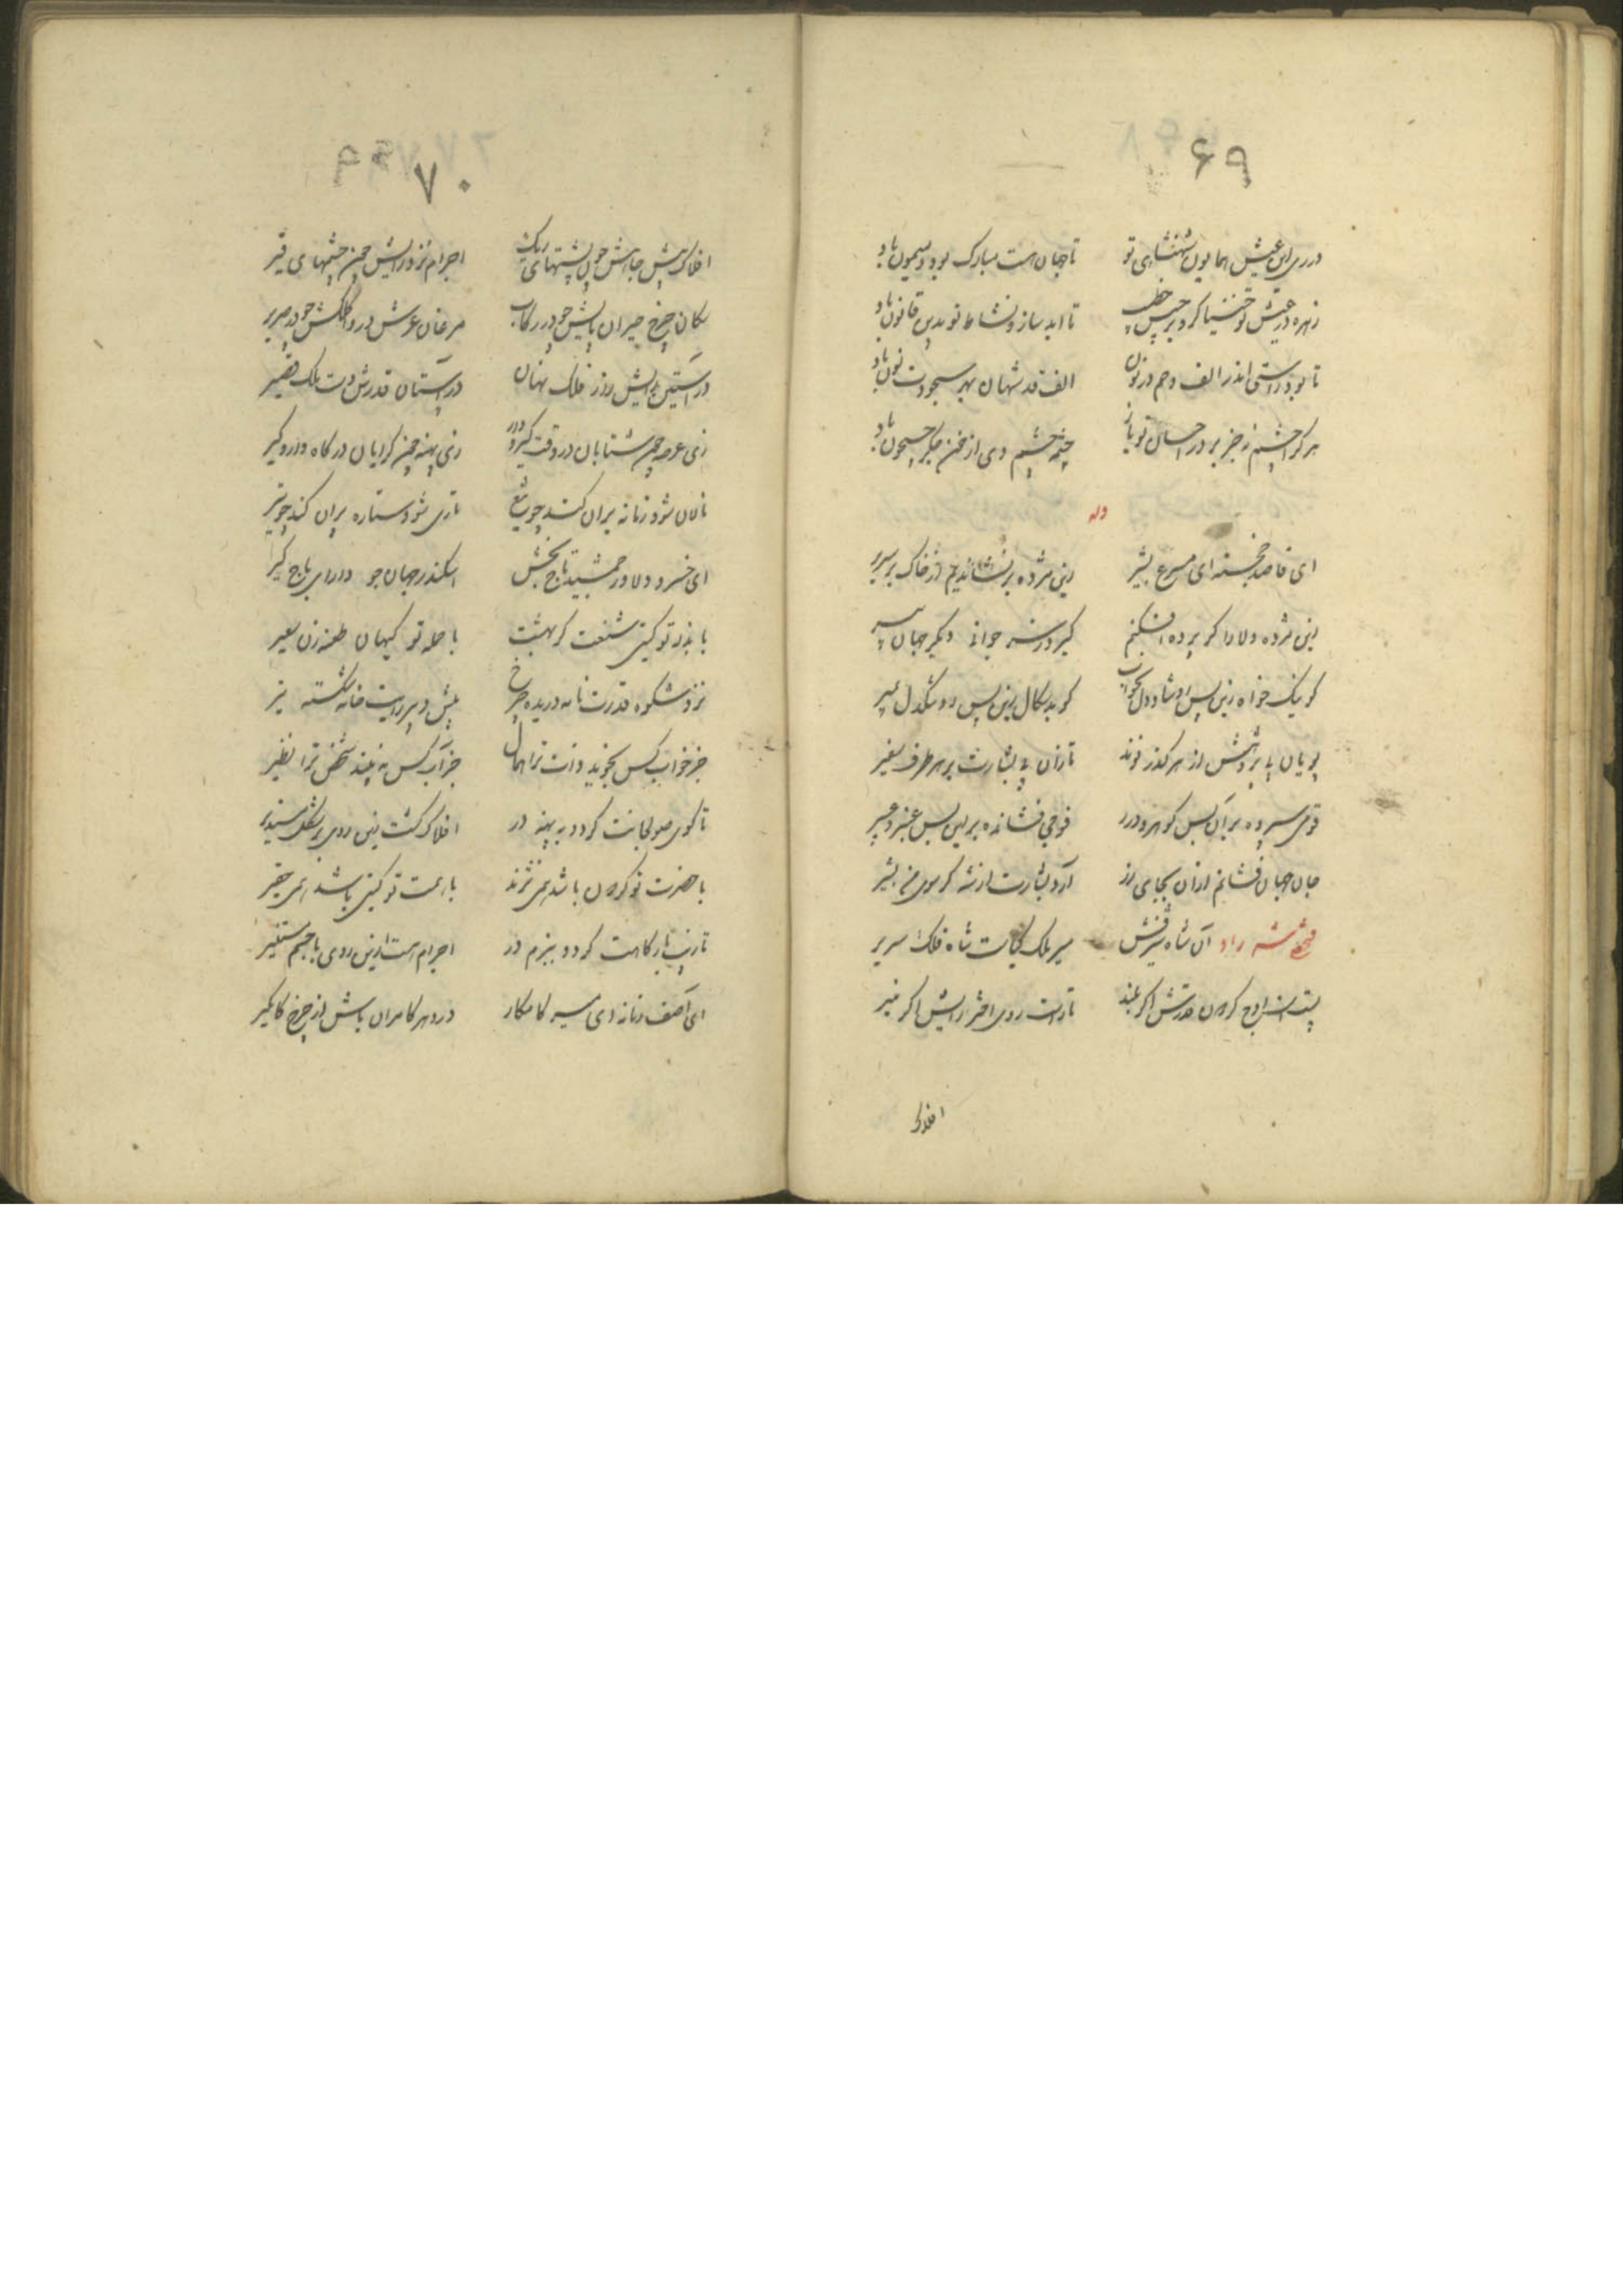 ۶۹
در ری این عیش همایون شهنشاهی تو تا جهان هست مبارک بود و میمون باد
زهره در عیش تو خنیاگر و برجیس خطیب تا ابد ساز و نشاط تو بدین قانون باد
تا بود راستی اندر الف و خم در نون الف قد شهان بهر سجودت نون باد
هر که را چشم نه جز بر در احسان تو باز چشمه چشم وی از خون جگر جیحون باد
وله
ای قاصد خجسته ای مسرع بشیر زین مژده بر نشاندیم از خاک بر سریر
زین مژده دلارا گر پرده افکنم گیرد ز سر جوانی دیگر جهان پیر
گو نیک خواه زین پس رو شاد دل گو بدسگال زین پس رو تنگدل بمیر
پویان پا بر وش از هر گذر نوند تازان پی بشارت بر هر طرف سفیر
قومی سپرده بر آن بس گوهر و درر فوجی فشانده بر این بس عنبر و عبیر
جان جهان فشانم از آن بجای زر آرد بشارت از شه گر سوی من بشیر
فتحعلی شه راد آن شاه شیرفش میر ملک شاه فلک سریر
پست است اوج گردون قدرش اگر بلند تار است روی اختر رایش اگر منیر
افلاک
۷۰
افلاک پیش جاهش چون پشتهای ریگ اجرام نزد رایش چون چشمهای قیر
سکان چرخ حیران پایش چو در رکاب مرغان عرش در وا کلکش چو در صریر
در آستین رایش روز فلک نهان در آستان قدرش دست ملک قصیر
زی عرصه چون شتابان در وقت گیر و دار زی پهنه چون گرایان در گاه دار و گیر
نالان شود زمانه بران کشد چو تیغ تاری شود ستاره پران کند چو تیر
ای خسرو دلاور جمشید تاج بخش اسکندر جهان جو دارای باج گیر
با بذل تو گیتی شنعت گر بهشت با حمله تو گیهان طعنه زن سعیر
نزد شکوه قدرت نامه دریده چرخ پیش دبیر رایت خامه شکسته تیر
جز خواب کس نجوید ذات ترا همال جز آب کس نبیند شخص ترا نظیر
تا گوی صولجانت گردد به پهنه در افلاک گشت زین روی بر شکل مستدیر
با حضرت تو گردون باشد همی نژند با همت تو گیتی باشد همی حقیر
تا زیب بارگاهت گردد ببزم در اجرام هست ازین روی با جسم مستنیر
ای آصف زمانه ای میر کامکار در دهر کامران باش از چرخ کام گیر